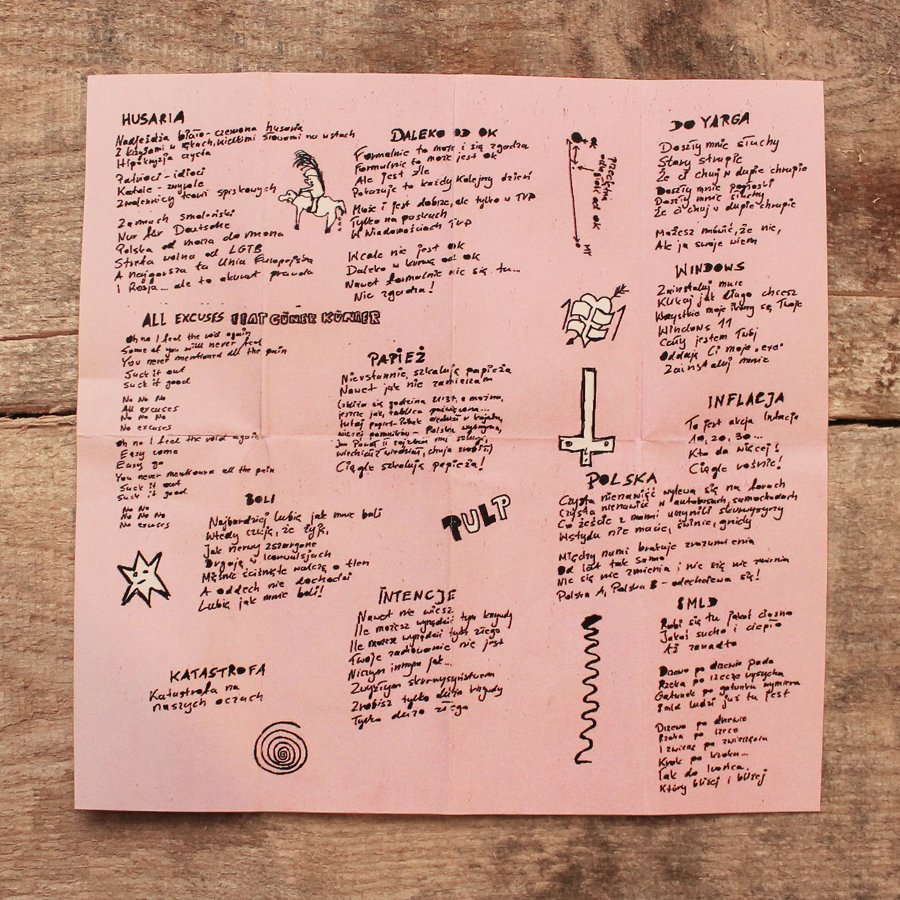 HUSARIA
Nadjeżdża biało-czerwona husaria
Z krzyżami w rękach, wielkimi słowami na ustach
Hipokryzja czysta
Patrioci - idioci
Katole - zwyrole
Zwolennicy teorii spiskowych
Zamach smoleński
Nur für Deutsche
Polska od morza do morza
Strefa wolna od LGTB
A najgorsza ta Unia Europejska
I Rosja... ale to akurat prawda
ALL EXCUSES FEAT GÜNER KÜNIER
Oh no I feel the void again
Some of you will never feel
You never mentioned all the pain
Suck it out
Suck it good
No No No
All excuses
No No No
No excuses
Oh no I feel the void again
Easy come
Easy go
You never mentioned all the pain
Suck it out
Suck it good
No No
No No No
No excuses
BOLI
Najbardziej lubię jak mnie boli
Wtedy czuję, że żyję,
Jak nerwy zszargane
Drgają w konwulsjach
Mięśnie ściśnięte walczą o tlen
A oddech nie dochodzi
Lubię jak mnie boli!
KATASTROFA
Katastrofa na
naszych oczach
DALEKO OD OK
Formalnie to może i się zgadza
Formalnie to może jest OK
Ale jest źle
Pokazuje to każdy kolejny dzień
Może i jest dobrze, ale tylko w TVP
Tylko na paskach
W Wiadomościach TVP
Wcale nie jest OK
Daleko w kurwę od OK
Nawet formalnie nic się tu...
Nic zgadza!
OK
Przeciętna
odległość od OK
MY
PAPIEŻ
Nieustannie, szkalują papieża
Nawet jak nie zamierzam
(zbliża się godzina 21:37, a można,
jeszcze jak, tablica poświęcona...
tutaj papież Polak
więcej pomników - Polska
Jan Paweł II
Ciągle szkalują papieża!
PULP
INTENCJE
Nawet nie wiesz
Ile możesz wyrządzić tym krzywdy
Ile możesz wyrządzić tym złego
Twoje zachowanie nie jest
Niczym innym jak...
Zwykłym skurwysyństwem
Zrobisz tylko dużo krzywdy
Tylko dużo złego
DO YARGA
Doszły mnie słuchy
Stary strupie
Że ci chuj w dupie chrupie
Doszły mnie pogłoski
Doszły mnie słuchy
Że ci chuj w dupie chrupie
Możesz mówić, że nie,
Ale ja swoje wiem
WINDOWS
Zainstaluj mnie
Klikaj jak długo chcesz
Wszystkie moje ikony są Twoje
Windows 11
Cały jestem Twój
Oddaję Ci moje "eye"
Zainstaluj mnie
INFLACJA
To jest akcja Inflacja
10, 20, 30...
Kto da więcej?
Ciągle rośnie!
POLSKA
Czysta nienawiść wylewa się na forach
Czysta nienawiść w autobusach, samochodach
Co żeście z nami uczynili skurwysyny
Wstydu nie macie, świnie, gnidy
Między nami brakuje zrozumienia
Od lat tak samo
Nic się nie zmienia i nic się nie zmienia
Polska A, Polska B - odechciewa się!
SMLD
Robi się tu jakoś ciasno
Jakoś sucho i ciepło
Aż zanadto
Drzewo po drzewie pada
Rzeka po rzece wysycha
Gatunek po gatunku wymiera
Smld ludzi już tu jest
Drzewo po drzewie
Rzeka po rzece
I zwierzę po zwierzęciu
Krok po kroku...
Tak do końca,
Który bliżej i bliżej